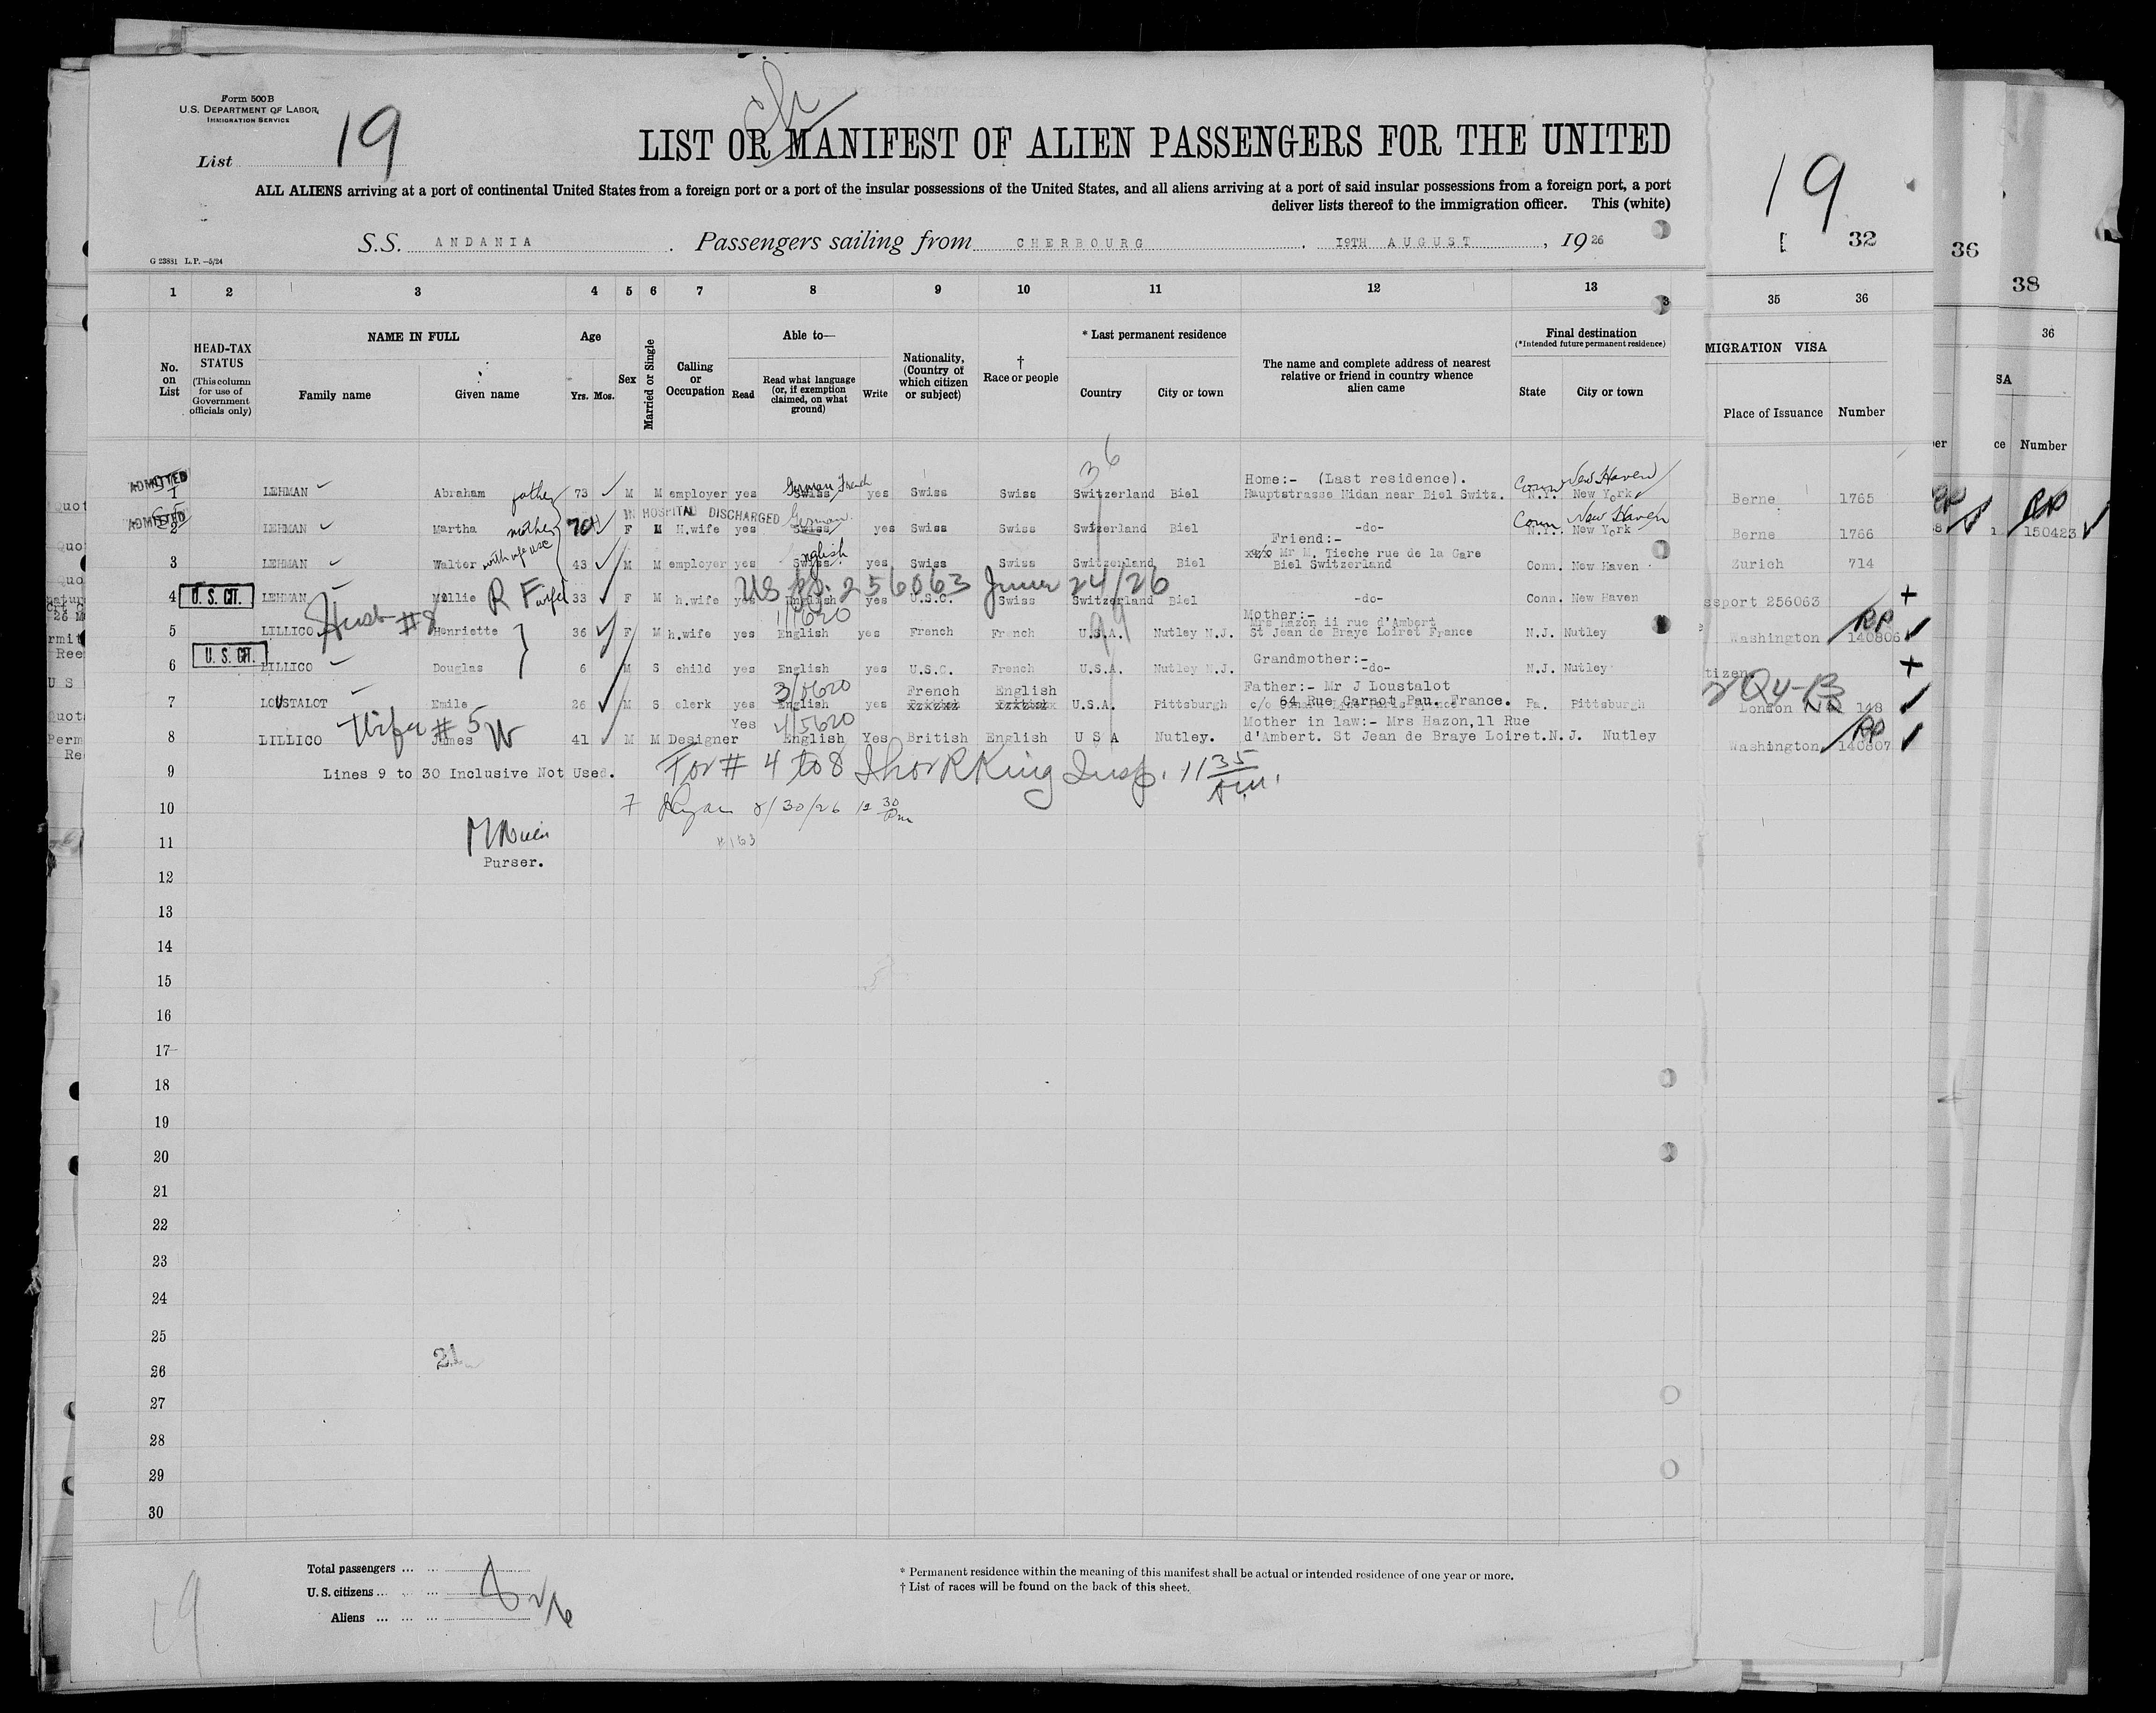 Form 500B
U.S. DEPARTMENT OF LABOR,
IMMIGRATION SERVICE
List 19
LIST OR MANIFEST OF ALIEN PASSENGERS FOR THE UNITED
ALL ALIENS arriving at a port of continental United States from a foreign port or a port of the insular possessions of the United States, and all aliens arriving at a port of said insular possessions from a foreign port, a port
deliver lists thereof to the immigration officer. This (white)
S.S. ANDANIA . Passengers sailing from CHERBOURG . 19TH AUGUST , 1926
G 23881 L.P.—5/24
1 2 3 4 5 6 7 8 9 10 11 12 13
No. on List
HEAD-TAX STATUS (This column for use of Government officials only)
NAME IN FULL
Family name Given name
Age
Yrs. Mos.
Sex
Married or Single
Calling or Occupation
Able to—
Read
Read what language (or, if exemption claimed, on what ground)
Write
Nationality, (Country of which citizen or subject)
† Race or people
* Last permanent residence
Country City or town
The name and complete address of nearest relative or friend in country whence alien came
Final destination
(*Intended future permanent residence)
State City or town
36
ADMITTED
1 LEHMAN Abraham father 73 M M employer yes Swiss German French yes Swiss Swiss Switzerland Biel Home:- (Last residence). Hauptstrasse Nidan near Biel Switz. N.Y. New York Conn New Haven
ADMITTED
IN HOSPITAL DISCHARGED
2 LEHMAN Martha mother 70 F M H.wife yes Swiss German yes Swiss Swiss Switzerland Biel -do- N.Y. New York Conn New Haven
3 LEHMAN Walter 43 M M employer yes Swiss English yes Swiss Swiss Switzerland Biel Friend:- Mr M. Tieche rue de la Gare Biel Switzerland Conn. New Haven
US pp. 256063 June 24/26
4 U.S. CIT. LEHMAN Mollie R F wife 33 F M h.wife yes English yes U.S.C. Swiss Switzerland Biel -do- Conn. New Haven
Husb #8
5 LILLICO Henriette 36 F M h.wife yes English yes French French U.S.A. Nutley N.J. Mother:- Mrs Hazon ii rue d'Ambert St Jean de Braye Loiret France N.J. Nutley
6 U.S. CIT. LILLICO Douglas 6 M S child yes English yes U.S.C. French U.S.A. Nutley N.J. Grandmother:- -do- N.J. Nutley
7 LOUSTALOT Emile 26 M S clerk yes English yes French English U.S.A. Pittsburgh Father:- Mr J Loustalot 64 Rue Carnot Pau. France. Pa. Pittsburgh
Wife #5 W
8 LILLICO James 41 M M Designer Yes English Yes British English U S A Nutley. Mother in law:- Mrs Hazon, 11 Rue d'Ambert. St Jean de Braye Loiret. N.J. Nutley
9 Lines 9 to 30 Inclusive Not Used.
For # 4 to 8 King Insp. 11 35 Am.
10 7 Ryan 8/30/26 12 30 Pm
11
Purser.
12
13
14
15
16
17
18
19
20
21
22
23
24
25
26
21
27
28
29
30
Total passengers ... ...
U. S. citizens ... ... ...
Aliens ... ... ...
19
* Permanent residence within the meaning of this manifest shall be actual or intended residence of one year or more.
† List of races will be found on the back of this sheet.
19
32
35 36
MIGRATION VISA
Place of Issuance Number
Berne 1765
Berne 1766
Zurich 714
sport 256063
Washington 140806 RP
tizen
London 148
Washington 140807 RP
36
38
36
SA
er ce Number
150423